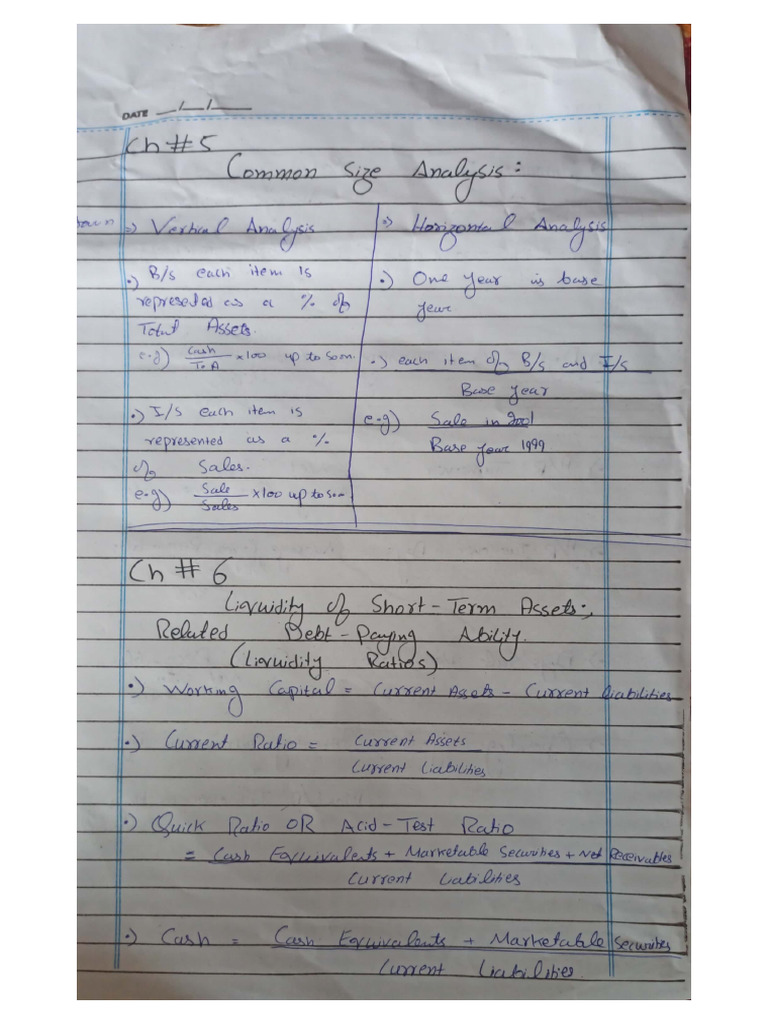 DATE __/__/____
Ch # 5
Common Size Analysis:
=) Vertical Analysis
•) B/s each item is
represeted as a % of
Total Assets.
e.g) Cash / To.A ×100 up to soon.
•) I/s each item is
represented as a %
of Sales.
e.g) Sale / Sales ×100 up to soon.
=) Horizontal Analysis
•) One year is base
year
•) each item of B/s and I/s
Base year
e.g) Sale in 2001
Base year 1999
Ch # 6
Liquidity of Short-Term Assets;
Related Debt-Paying Ability.
(Liquidity Ratios)
•) Working Capital = Current Assets - Current liabilities
•) Current Ratio = Current Assets
Current Liabilities
•) Quick Ratio OR Acid-Test Ratio
= Cash Equivalents + Marketable Securities + Net Receivables
Current Liabilities
•) Cash = Cash Equivalents + Marketable Securities
Current Liabilities.